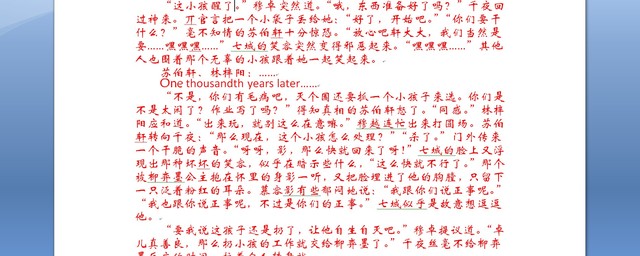 “这小孩醒了。”穆卓突然道。“哦，东西准备好了吗？”千夜回
过神来。亓官言把一个小袋子丢给她：“好了，开始吧。”“你们要干
什么？”毫不知情的苏伯轩十分惊恐。“放心吧轩大大，我们当然是
要……嘿嘿嘿……”七城的笑容突然变得邪恶起来。“嘿嘿嘿……”其他
人也围着那个无辜的小孩跟着她一起笑起来。
苏伯轩、林梓阳：……
One thousandth years later……
“不是，你们有毛病吧，天个国还要抓一个小孩子来选。你们是
不是太闲了？作业写了吗？”得知真相的苏伯轩怒了。“同感。”林梓
阳应和道。“出来玩，就别这么在意嘛。”穆越连忙出来打圆场。苏伯
轩转向千夜：“那么现在，这个小孩怎么处理？”“杀了。”门外传来
一个干脆的声音。“呀呀，影，那么快就回来了呀！”七城的脸上又浮
现出那种坏坏的笑容，似乎在暗示些什么，“这么快就不行了。”那个
被柳弈墨公主抱在怀里的身影一听，又把脸埋进了他的胸膛，只留下
一只泛着粉红的耳朵。慕容影有些郁闷地说：“我跟你们说正事呢。”
“我也跟你说正事呢，不过是你们的正事。”七城似乎是故意想逗逗
他。
“要我说这孩子还是扔了，让他自生自灭吧。”穆卓提议道。“卓
儿真善良，那么扔小孩的工作就交给柳弈墨了。”千夜丝毫不给柳弈